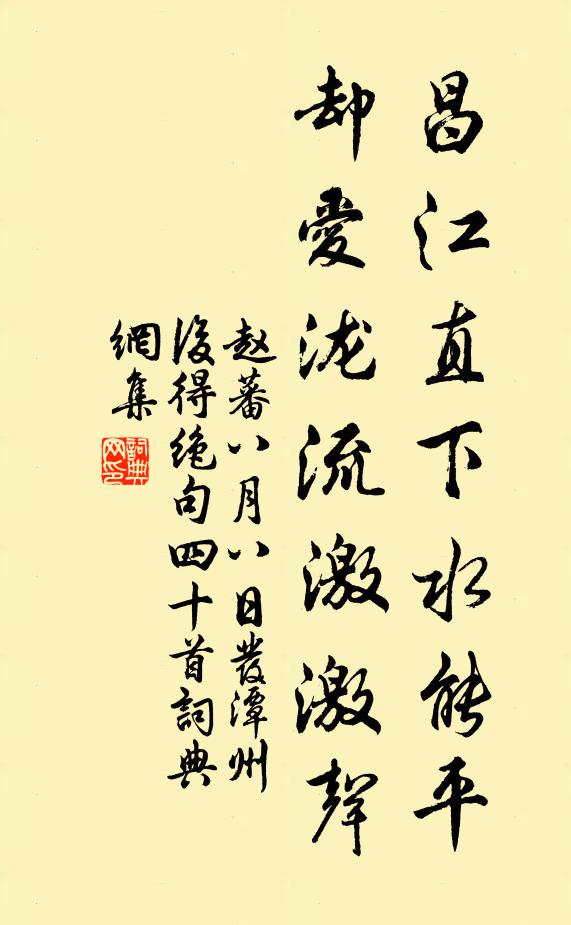 昌江直下水能平
却愛泷流激激聲
赵蕃八月八日發潭州
後得绝句四十首詞典
網集
詞典网印